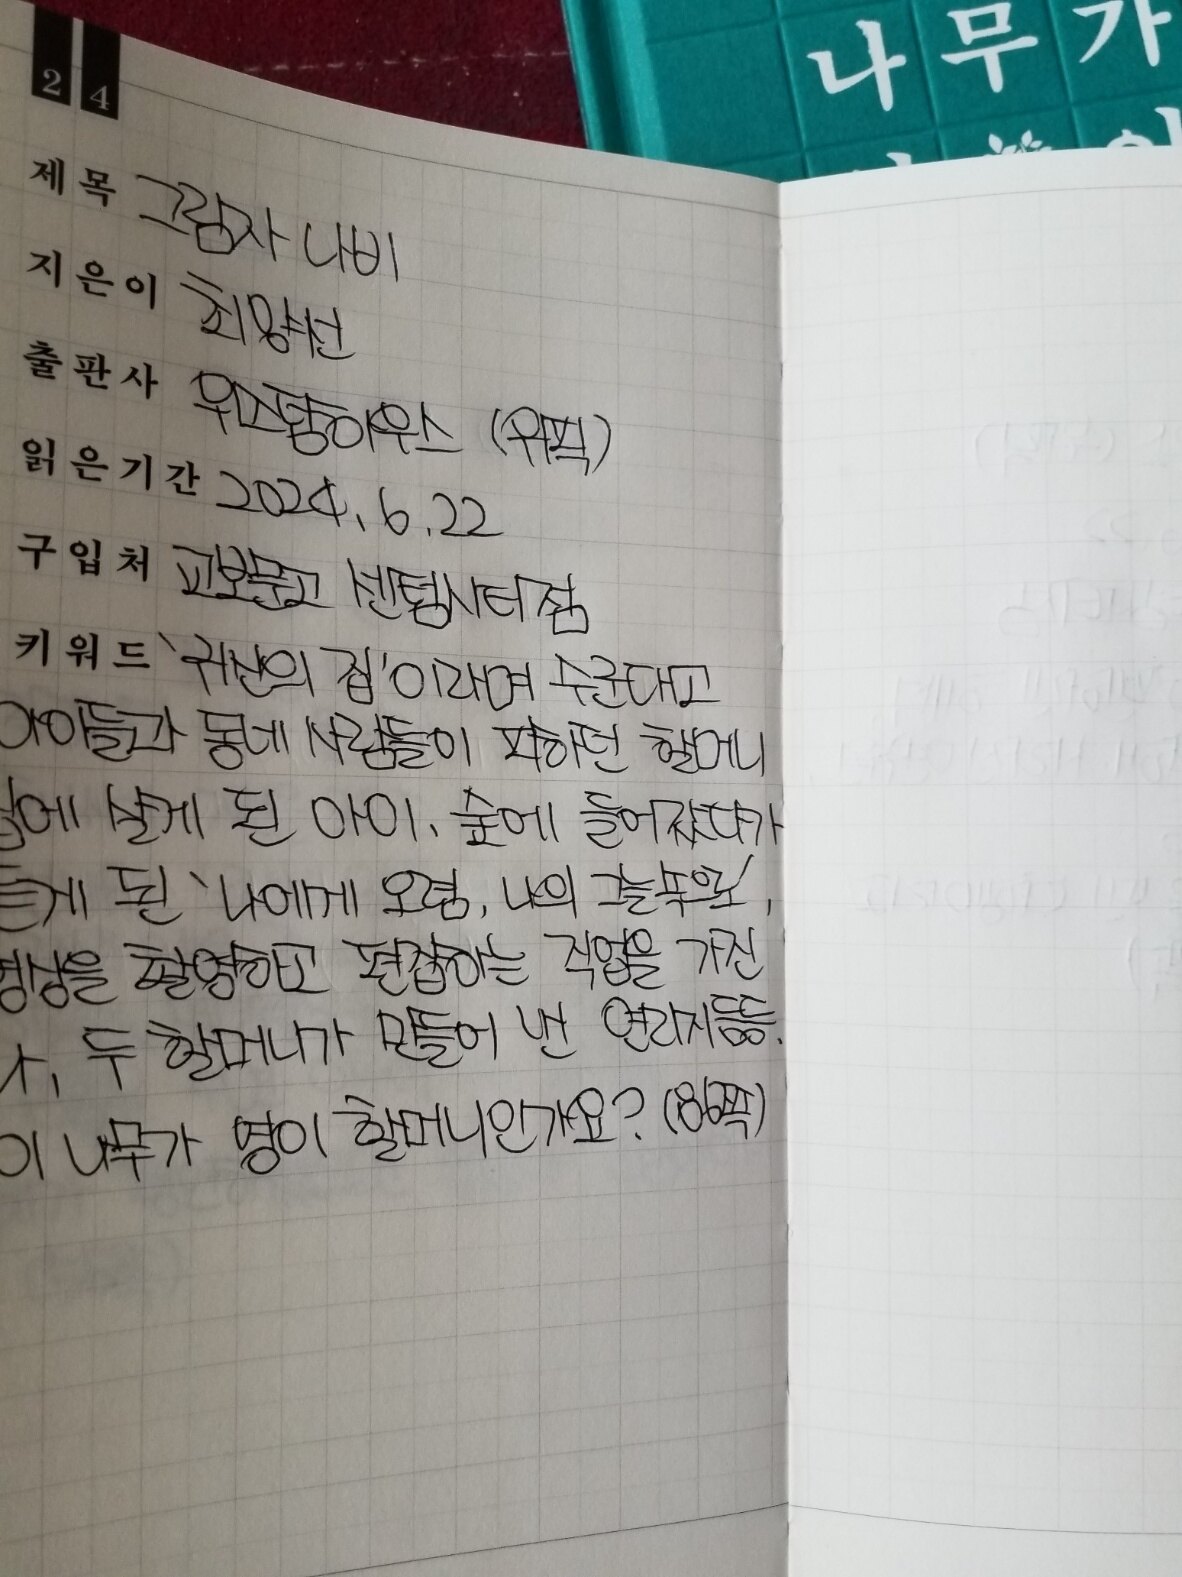 나무가
2 4
제목 그림자 나비
지은이 최양선
출판사 위즈덤하우스 (위픽)
읽은기간 2024. 6. 22
구입처 교보문고 센텀시티점
키워드 '귀신의 집'이라며 수군대고
아이들과 동네 사람들이 피하던 할머니
집에 살게 된 아이. 숲에 들어갔다가
듣게 된 '나에게 오렴, 나의 그늘 속으로',
영상을 촬영하고 편집하는 직업을 가진
두 할머니가 만들어 낸 연리지 등등.
이 나무가 영이 할머니인가요? (86쪽)